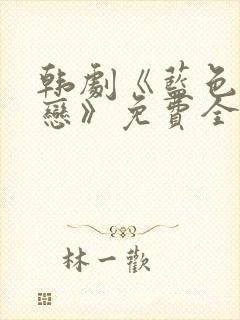 韩劇《藍色
戀》免費全
林一歡